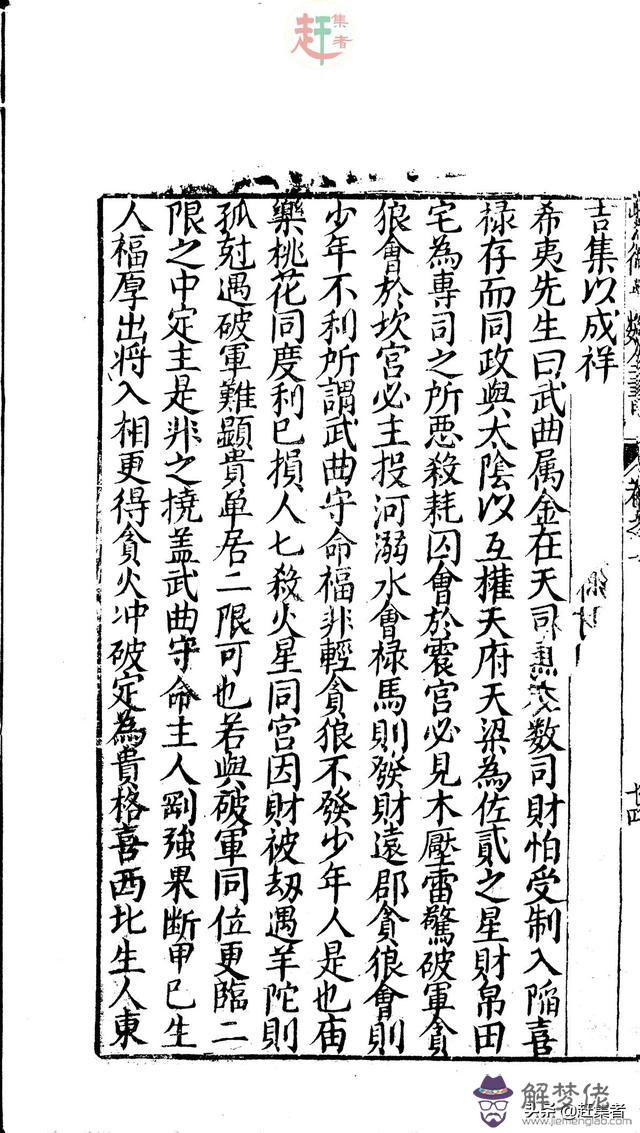 赶集者
吉集以成祥
希夷先生曰武曲属金在天司壽在数司財怕受制入陥喜
禄存而同政與太陰以互權天府天梁為佐貳之星財帛田
宅為專司之所惡殺耗囚會於震宮必見木壓雷驚破軍貪
狼會於坎宮必主投河溺水會祿馬則發財遠郡貪狼會則
少年不利所謂武曲守命福非輕貪狼不發少年人是也庙
樂桃花同度利已損人七殺火星同宮因財被刼遇羊陀則
孤尅遇破軍難顯貴单居二限可也若與破軍同位更臨二
限之中定主是非之撓盖武曲守命主人剛強果断甲巳生
人福厚出將入相更得貪火冲破定為貴格喜西北生人東
解梦佬
www.jiemenglao.com
头条@赶集者